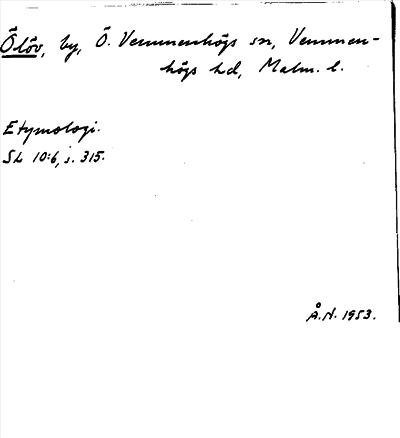 Ölöv, by, Ö. Vemmenhögs sn, Vemmen-
högs hd, Malm. l.
Etymologi.
SL 10:6, s. 315.
Å.N. 1953.